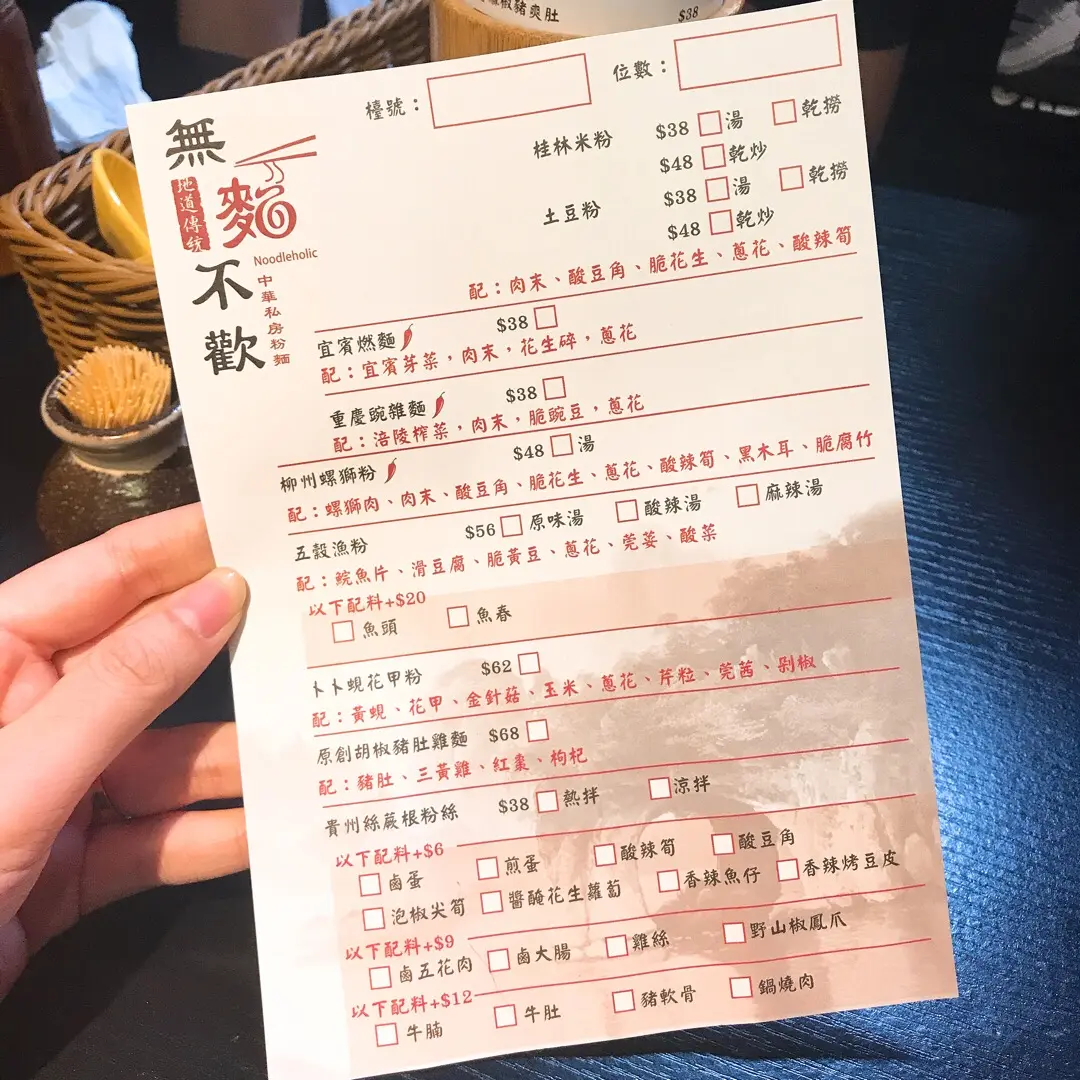 椒豬爽肚 $38
檯號： 位數：
無麵不歡
地道傳統
Noodleholic
中華私房粉麵
桂林米粉 $38 湯 乾撈
$48 乾炒
土豆粉 $38 湯 乾撈
$48 乾炒
配：肉末、酸豆角、脆花生、蔥花、酸辣筍
宜賓燃麵 $38
配：宜賓芽菜，肉末，花生碎，蔥花
重慶豌雜麵 $38
配：涪陵榨菜，肉末，脆豌豆，蔥花
柳州螺獅粉 $48 湯
配：螺獅肉、肉末、酸豆角、脆花生、蔥花、酸辣筍、黑木耳、脆腐竹
五穀漁粉 $56 原味湯 酸辣湯 麻辣湯
配：鯇魚片、滑豆腐、脆黃豆、蔥花、莞荽、酸菜
以下配料+$20
魚頭 魚春
卜卜蜆花甲粉 $62
配：黃蜆、花甲、金針菇、玉米、蔥花、芹粒、莞茜、剁椒
原創胡椒豬肚雞麵 $68
配：豬肚、三黃雞、紅棗、枸杞
貴州絲蕨根粉絲 $38 熱拌 涼拌
以下配料+$6
鹵蛋 煎蛋 酸辣筍 酸豆角
泡椒尖筍 醬醃花生蘿蔔 香辣魚仔 香辣烤豆皮
以下配料+$9
鹵五花肉 鹵大腸 雞絲 野山椒鳳爪
以下配料+$12
牛腩 牛肚 豬軟骨 鍋燒肉